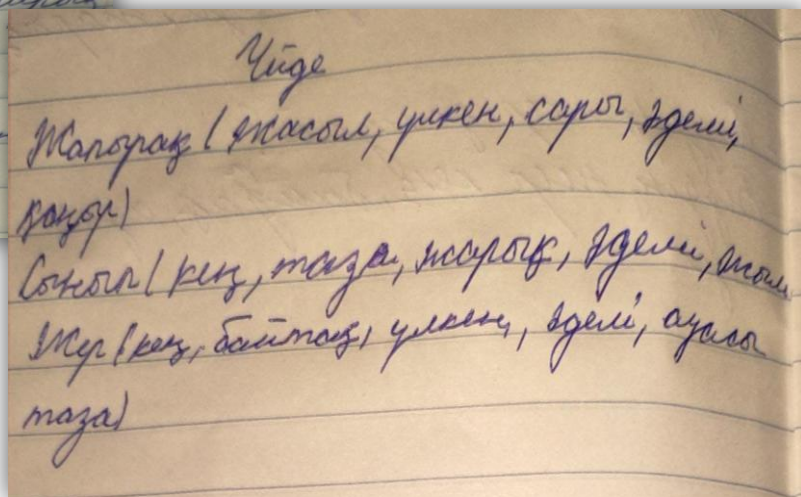 Үйде
Жапырақ (жасыл, үлкен, сары, әдемі,
қоңыр)
Сынып (кең, таза, жарық, әдемі, жылы
Жер (кең, байтақ, үлкен, әдемі, ауасы
таза)